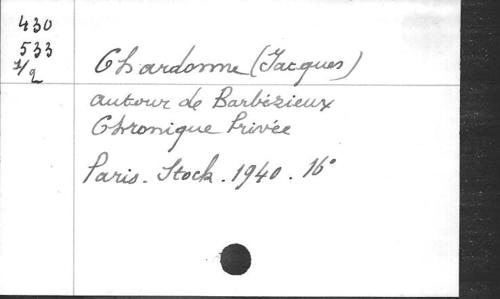 430
533
1/2
Chardonne (Jacques)
autour de Barbézieux
Chronique Privée
Paris. Stock. 1940. 16°